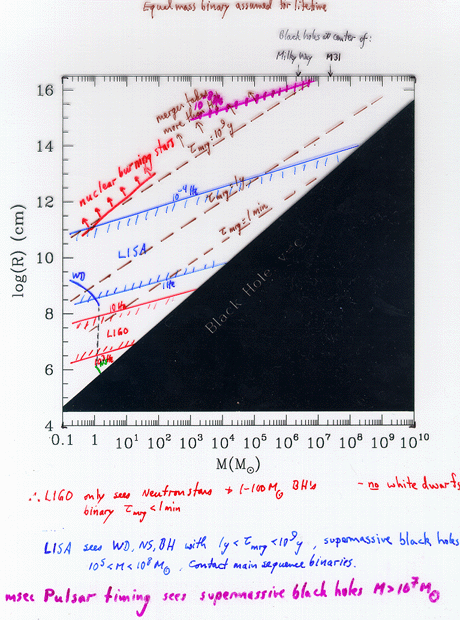 Equal mass binary assumed for lifetime
Black holes at center of:
Milky Way M31
16
14
12
10
8
6
4
log(R) (cm)
merger takes
more than
10^9 y
τmrg=10^9 y
nuclear burning stars
10^-4 Hz
τmrg=1y
τmrg=1 min
LISA
WD
1Hz
10 Hz
LIGO
Black Hole
0.1 1 10 10^2 10^3 10^4 10^5 10^6 10^7 10^8 10^9 10^10
M(M⊙)
∴ LIGO only sees Neutron stars + 1-100 M⊙ BH's - no white dwarfs
binary τmrg < 1 min
LISA sees WD, NS, BH with 1y < τmrg < 10^9 y, supermassive black holes
10^5 < M < 10^8 M⊙, Contact main sequence binaries.
msec Pulsar timing sees supermassive black holes M > 10^7 M⊙